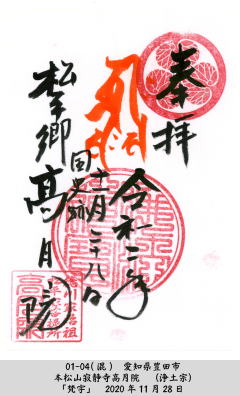 奉拝
令和二年
十一月二十八日
国史跡
松平郷
高月院
01-04(混) 愛知県豊田市
本松山寂静寺高月院 (浄土宗)
「梵字」 2020年11月28日